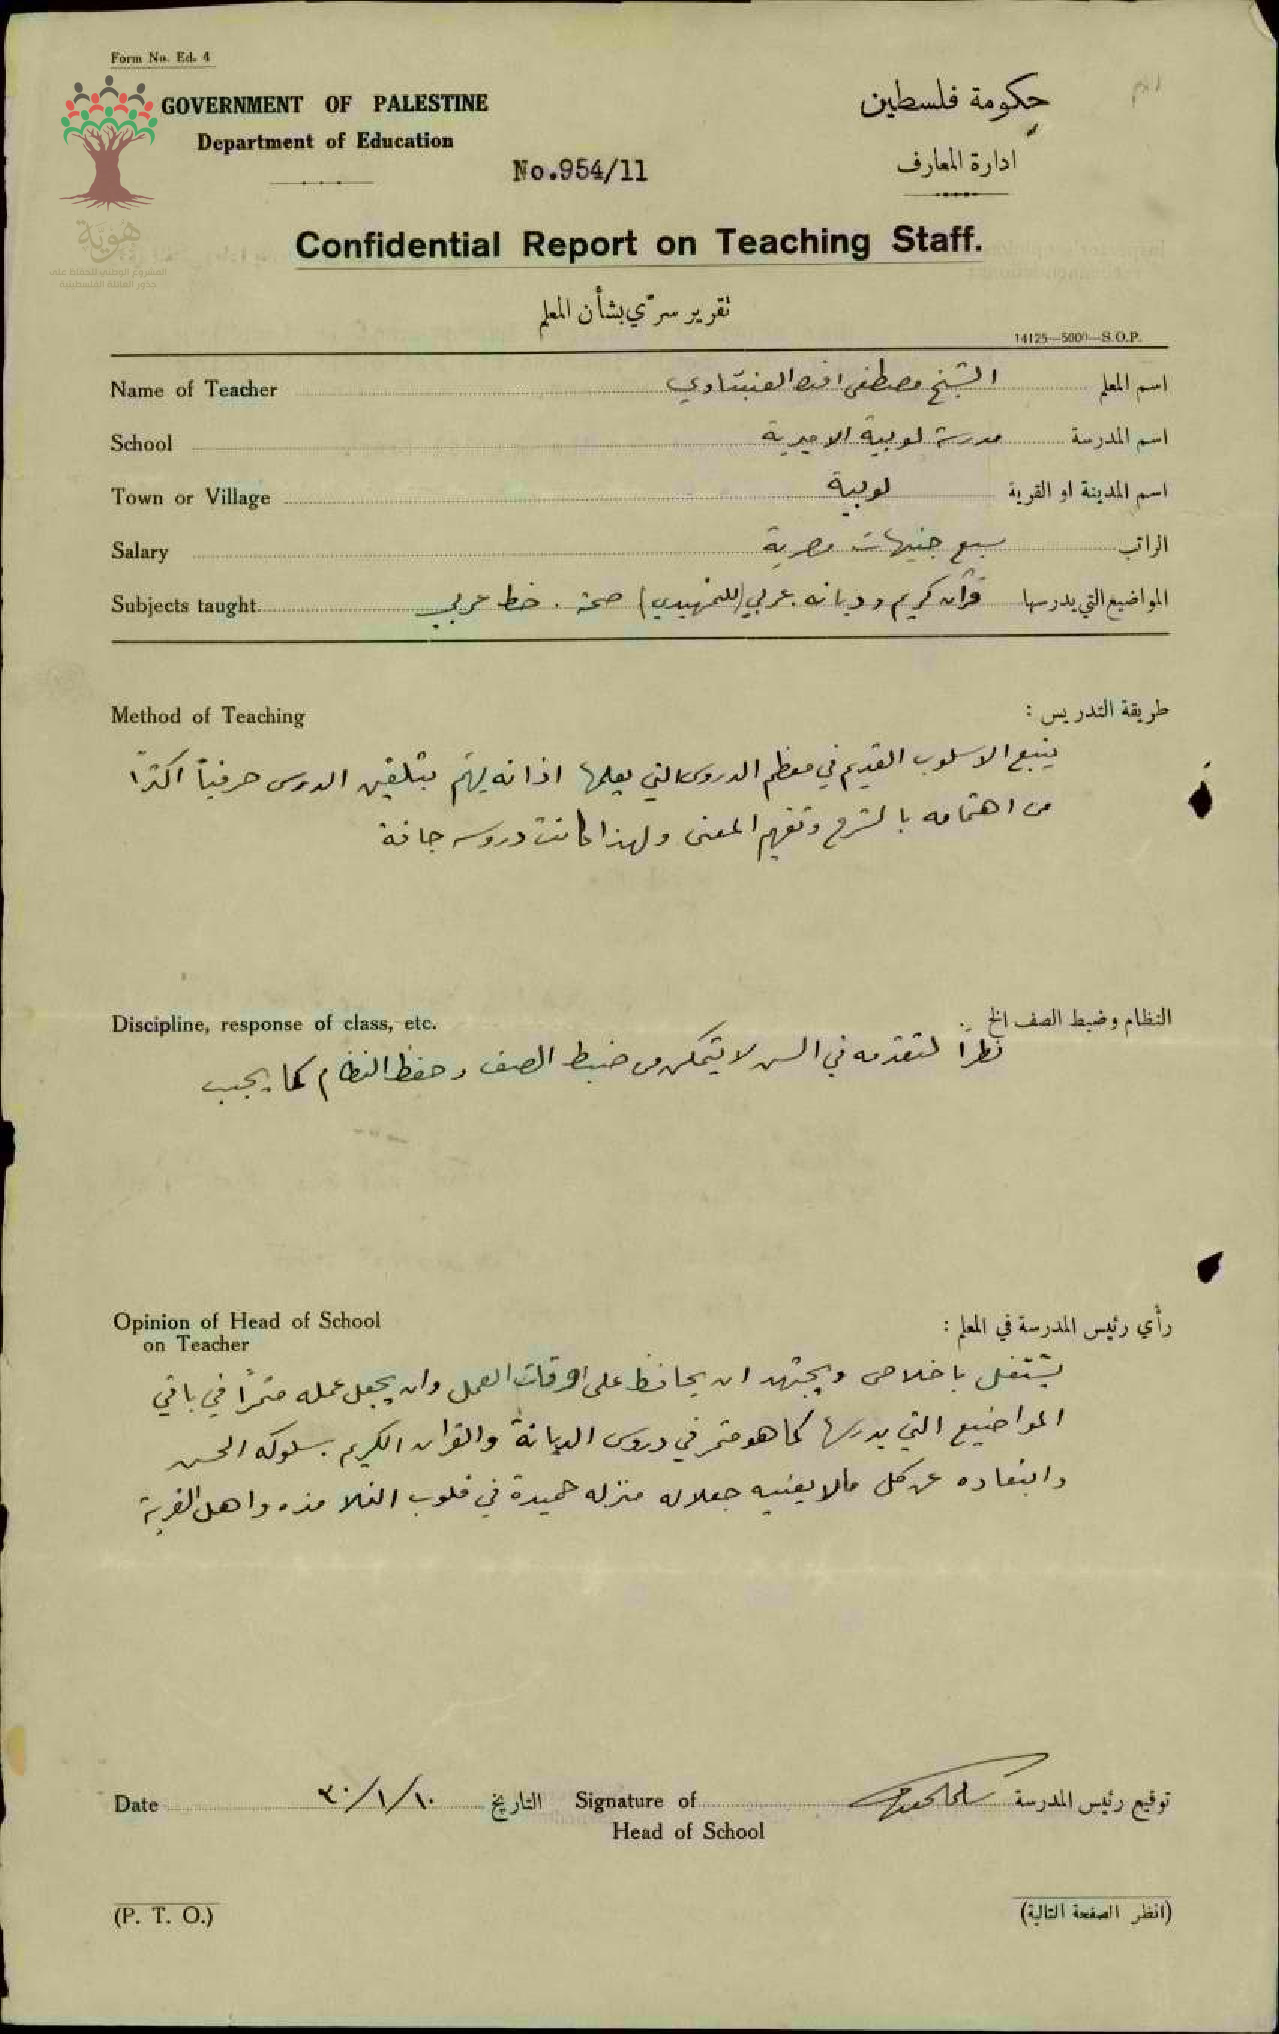 Form No. Ed. 4
GOVERNMENT OF PALESTINE
حكومة فلسطين
Department of Education
ادارة المعارف
No.954/11
هُويَّة
المشروع الوطني للحفاظ على
جذور العائلة الفلسطينية
Confidential Report on Teaching Staff.
تقرير سرّي بشأن المعلم
14125—5000—S.O.P.
Name of Teacher الشيخ مصطفى افندي اسم المعلم
School مدرسة لوبية الاميرية اسم المدرسة
Town or Village لوبية اسم المدينة او القرية
Salary سبع جنيهات مصرية الراتب
Subjects taught قرآن كريم وديانه. عربي (للتمهيدي) صحة. خط عربي المواضيع التي يدرسها
Method of Teaching طريقة التدريس :
يتبع الاسلوب القديم في معظم الدروس التي يعلمها اذ انه يهتم بتلقين الدرس حرفياً اكثر
من اهتمامه بالشرح وتفهيم المعنى ولهذا كانت دروسه جافة
Discipline, response of class, etc. النظام وضبط الصف الخ :
نظراً لتقدمه في السن لا يتمكن من ضبط الصف وحفظ النظام كما يجب
Opinion of Head of School
on Teacher
رأي رئيس المدرسة في المعلم :
يشتغل باخلاص ويجتهد ان يحافظ على اوقات العمل وان يجعل عمله مثمراً في باقي
المواضيع التي يدرسها كما هو مثمر في دروس الديانة والقران الكريم. سلوكه الحسن
وابتعاده عن كل مالا يعنيه جعلا له منزله حميدة في قلوب التلامذه واهل القرية
Date ٣٠/١/١٠ التاريخ Signature of توقيع رئيس المدرسة
Head of School
(P. T. O.) (انظر الصفحة التالية)